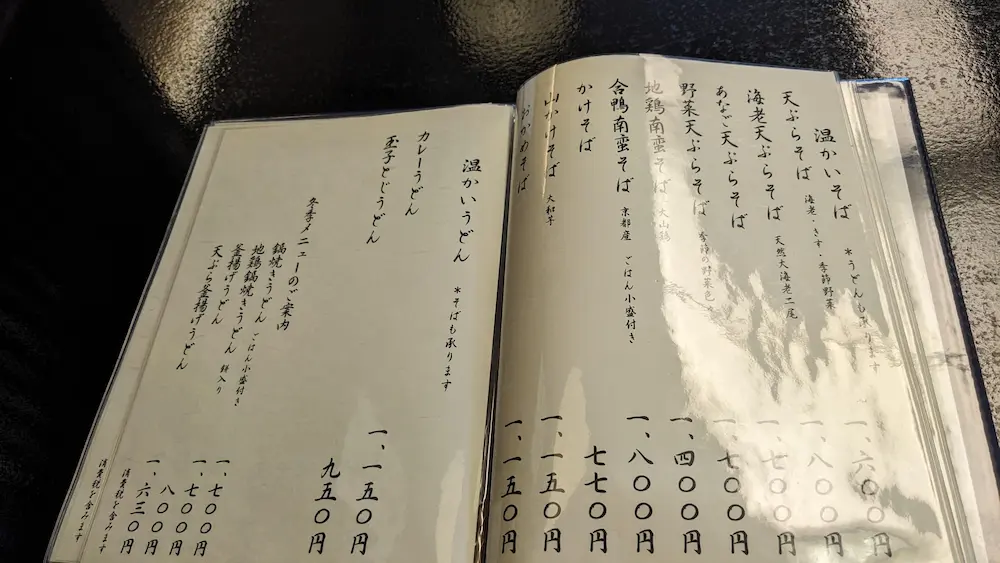 温かいそば *うどんも承ります
天ぷらそば 海老・きす・季節野菜 一、六〇〇円
海老天ぷらそば 天然大海老二尾 一、八〇〇円
あなご天ぷらそば 一、七〇〇円
野菜天ぷらそば 季節の野菜色 一、七〇〇円
地鶏南蛮そば 大山鶏 一、四〇〇円
合鴨南蛮そば 京都産 ごはん小盛付き 一、八〇〇円
かけそば 七七〇円
山かけそば 大和芋 一、一五〇円
おかめそば 一、一五〇円
温かいうどん *そばも承ります
カレーうどん 一、一五〇円
玉子とじうどん 九五〇円
冬季メニューのご案内
鍋焼きうどん 一、七〇〇円
地鶏鍋焼きうどん ごはん小盛付き 一、七〇〇円
釜揚げうどん 餅入り 八〇〇円
天ぷら釜揚げうどん 一、六三〇円
消費税を含みます
消費税を含みます